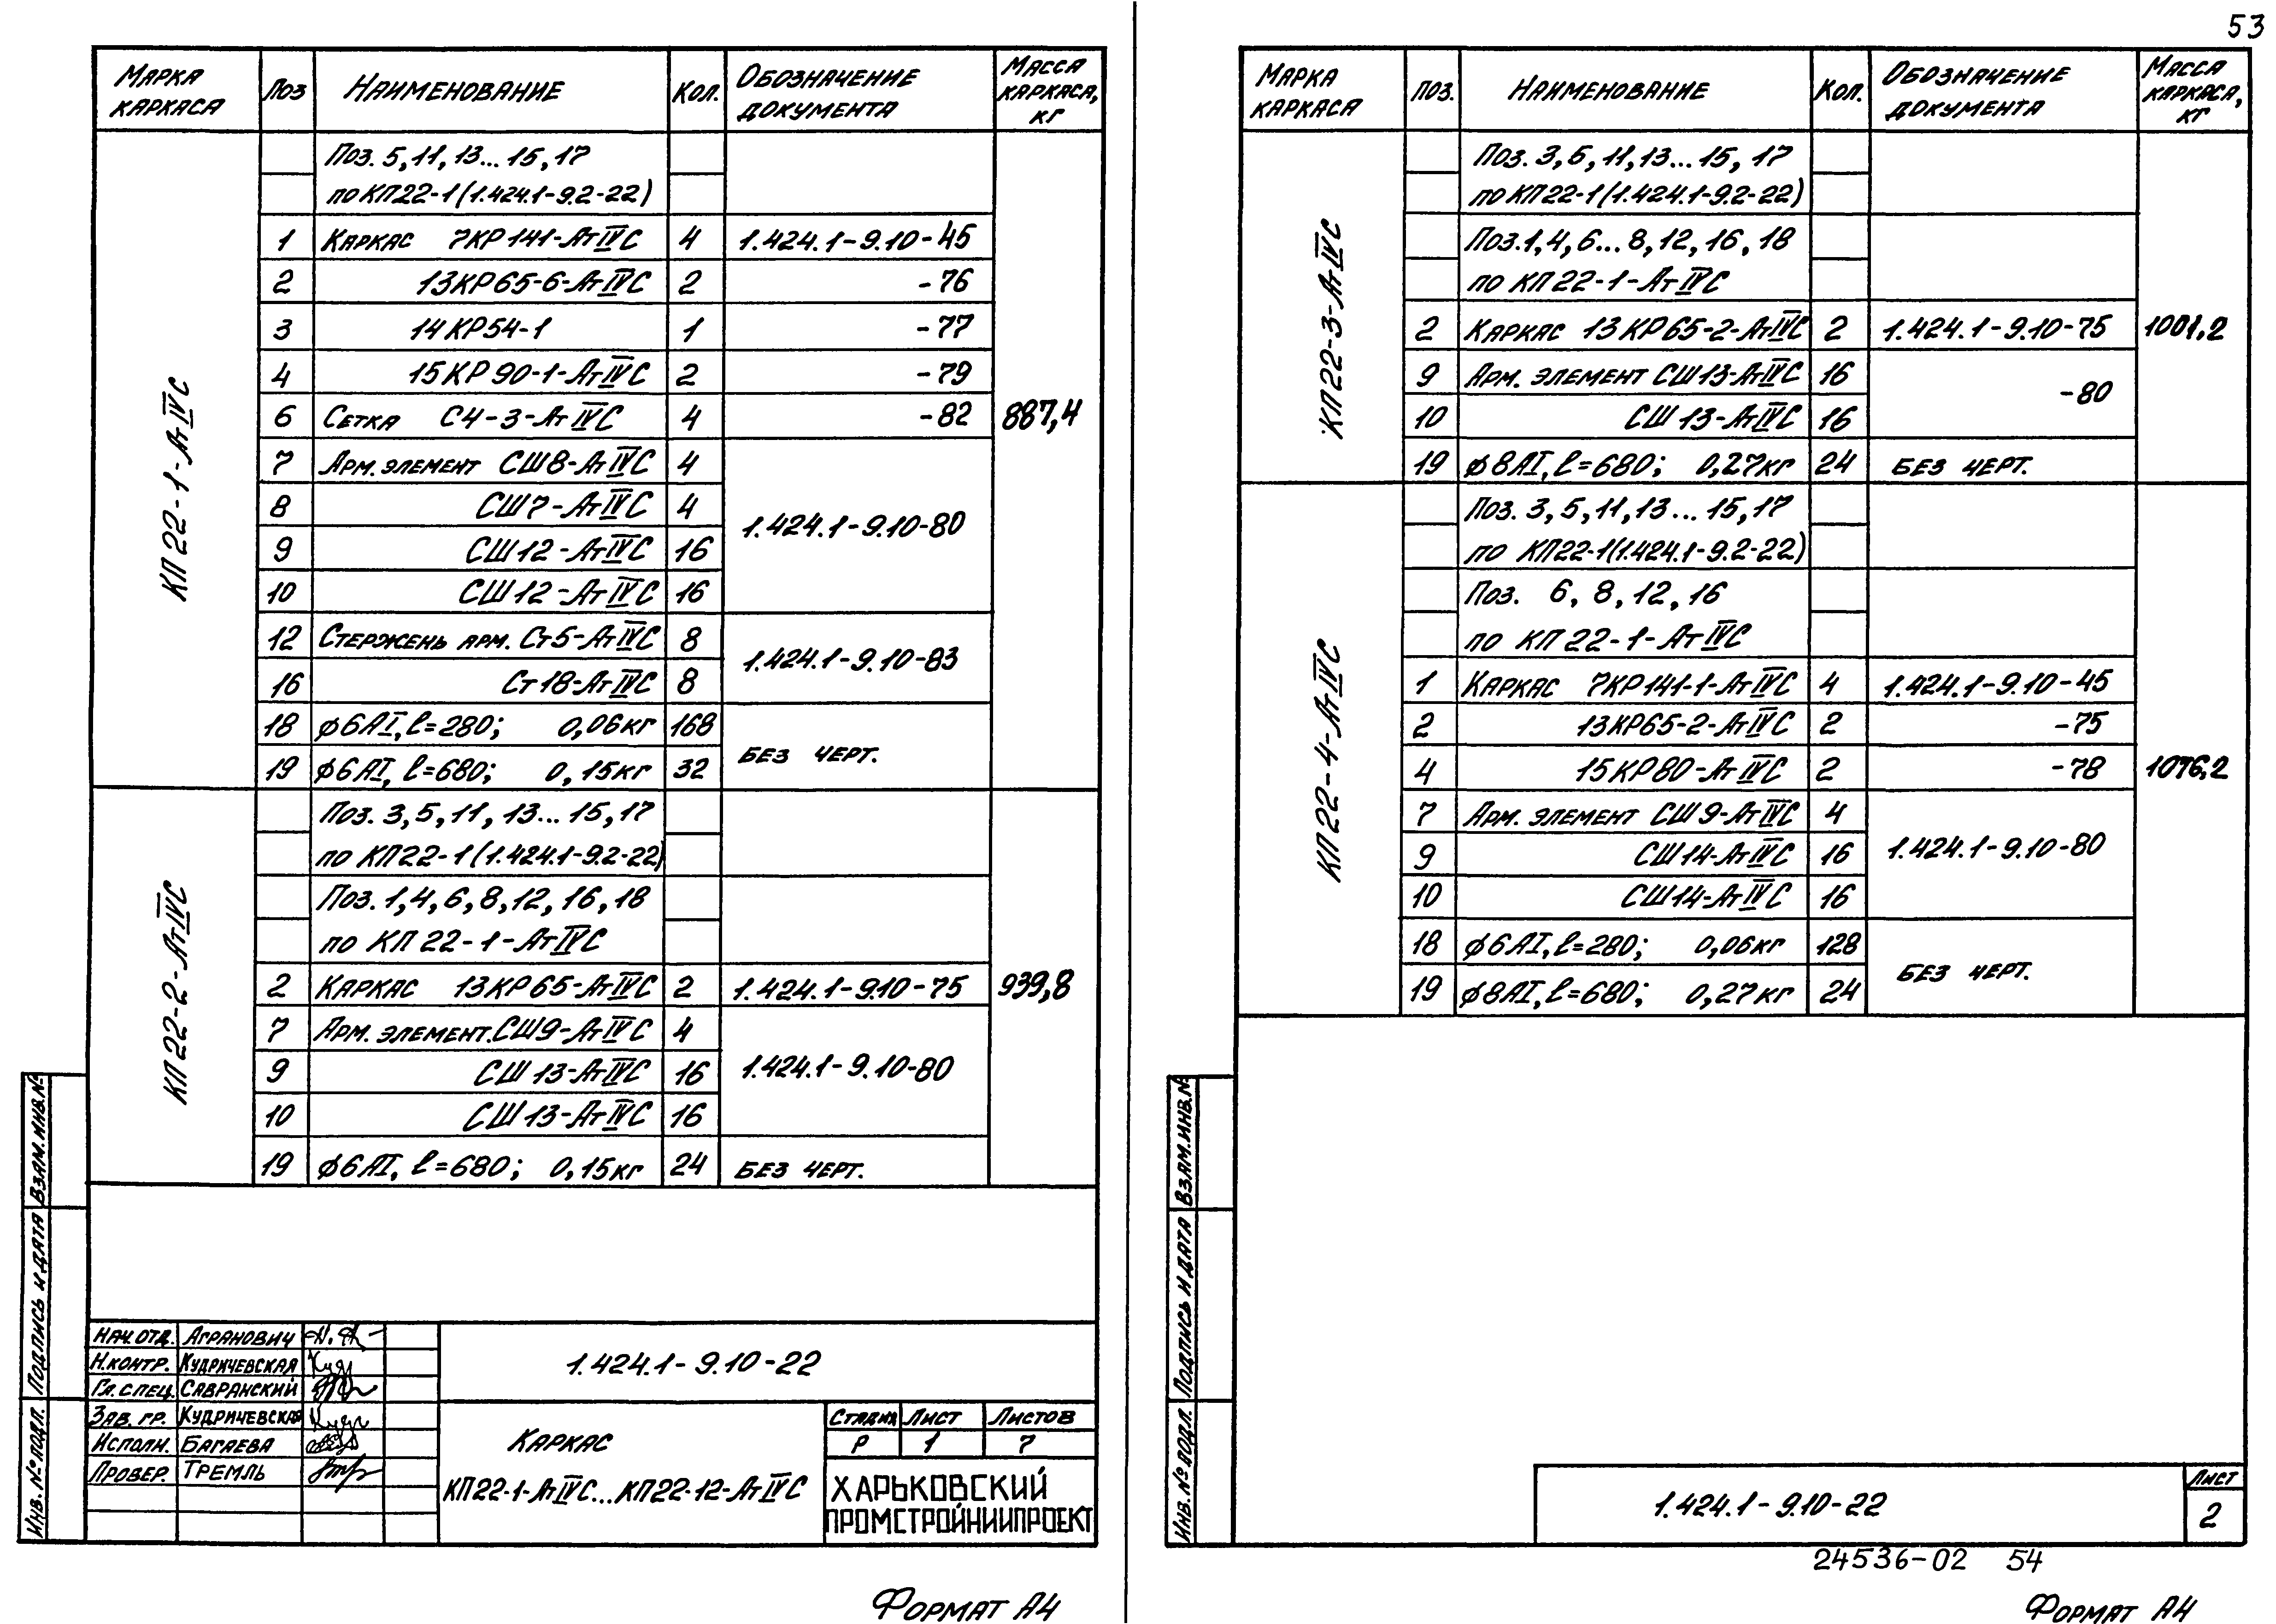 53
Марка каркаса | Поз | Наименование | Кол. | Обозначение документа | Масса каркаса, кг
КП22-1-АтIVС
887,4
Поз. 5, 11, 13... 15, 17
по КП22-1 (1.424.1-9.2-22)
1 | Каркас 7КР141-АтIVС | 4 | 1.424.1-9.10-45
2 | 13КР65-6-АтIVС | 2 | -76
3 | 14КР54-1 | 1 | -77
4 | 15КР90-1-АтIVС | 2 | -79
6 | Сетка С4-3-АтIVС | 4 | -82
7 | Арм. элемент СШ8-АтIVС | 4
8 | СШ7-АтIVС | 4
1.424.1-9.10-80
9 | СШ12-АтIVС | 16
10 | СШ12-АтIVС | 16
12 | Стержень арм. Ст5-АтIVС | 8
1.424.1-9.10-83
16 | Ст18-АтIVС | 8
18 | ϕ6АI, ℓ=280; 0,06кг | 168
без черт.
19 | ϕ6АI, ℓ=680; 0,15кг | 32
КП22-2-АтIVС
939,8
Поз. 3, 5, 11, 13... 15, 17
по КП22-1 (1.424.1-9.2-22)
Поз. 1, 4, 6, 8, 12, 16, 18
по КП 22-1-АтIVС
2 | Каркас 13КР65-АтIVС | 2 | 1.424.1-9.10-75
7 | Арм. элемент. СШ9-АтIVС | 4
9 | СШ13-АтIVС | 16
1.424.1-9.10-80
10 | СШ13-АтIVС | 16
19 | ϕ6АI, ℓ=680; 0,15кг | 24 | без черт.
Взам. инв. №
Подпись и дата
Инв. № подл.
Нач. отд. Агранович
Н. контр. Кудричевская
Гл. спец. Савранский
Зав. гр. Кудричевская
Исполн. Багаева
Провер. Тремль
1.424.1-9.10-22
Каркас
КП22-1-АтIVС...КП22-12-АтIVС
Стадия | Лист | Листов
Р | 1 | 7
ХАРЬКОВСКИЙ
ПРОМСТРОЙНИИПРОЕКТ
Формат А4
Марка каркаса | Поз. | Наименование | Кол. | Обозначение документа | Масса каркаса, кг
КП22-3-АтIVС
1001,2
Поз. 3, 5, 11, 13... 15, 17
по КП22-1 (1.424.1-9.2-22)
Поз. 1, 4, 6... 8, 12, 16, 18
по КП 22-1-АтIVС
2 | Каркас 13КР65-2-АтIVС | 2 | 1.424.1-9.10-75
9 | Арм. элемент СШ13-АтIVС | 16
-80
10 | СШ13-АтIVС | 16
19 | ϕ8АI, ℓ=680; 0,27кг | 24 | без черт.
КП22-4-АтIVС
1076,2
Поз. 3, 5, 11, 13... 15, 17
по КП22-1 (1.424.1-9.2-22)
Поз. 6, 8, 12, 16
по КП 22-1-АтIVС
1 | Каркас 7КР141-1-АтIVС | 4 | 1.424.1-9.10-45
2 | 13КР65-2-АтIVС | 2 | -75
4 | 15КР80-АтIVС | 2 | -78
7 | Арм. элемент СШ9-АтIVС | 4
9 | СШ14-АтIVС | 16
1.424.1-9.10-80
10 | СШ14-АтIVС | 16
18 | ϕ6АI, ℓ=280; 0,06кг | 128
без черт.
19 | ϕ8АI, ℓ=680; 0,27кг | 24
Взам. инв. №
Подпись и дата
Инв. № подл.
1.424.1-9.10-22
Лист
2
24536-02 54
Формат А4